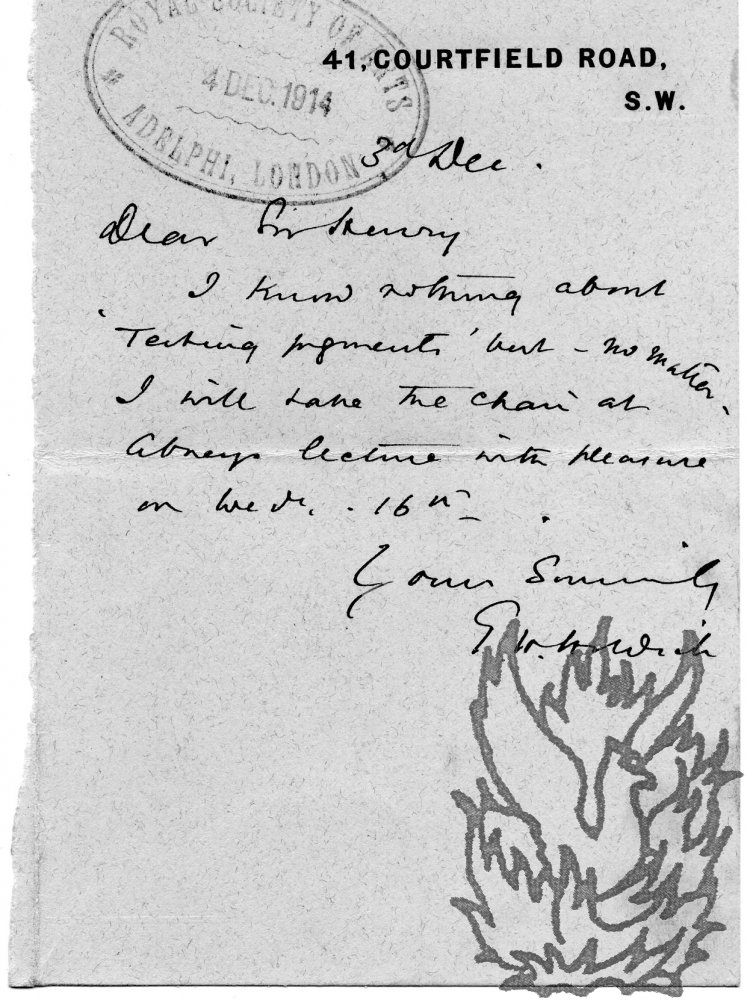 ROYAL SOCIETY OF ARTS
4 DEC. 1914
ADELPHI, LONDON
41, COURTFIELD ROAD,
S.W.
3d Dec.
Dear Sir Henry
I know nothing about
'Testing pigments' but – no matter.
I will take the chair at
Abneys lecture with pleasure
on Wed. . 16th .
Yours Sincerely